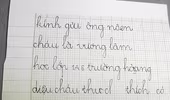 kính gửi ông noen
cháu là vương lâm
học lớn 5A5 trường hoàng
diệu cháu thươcl thích có